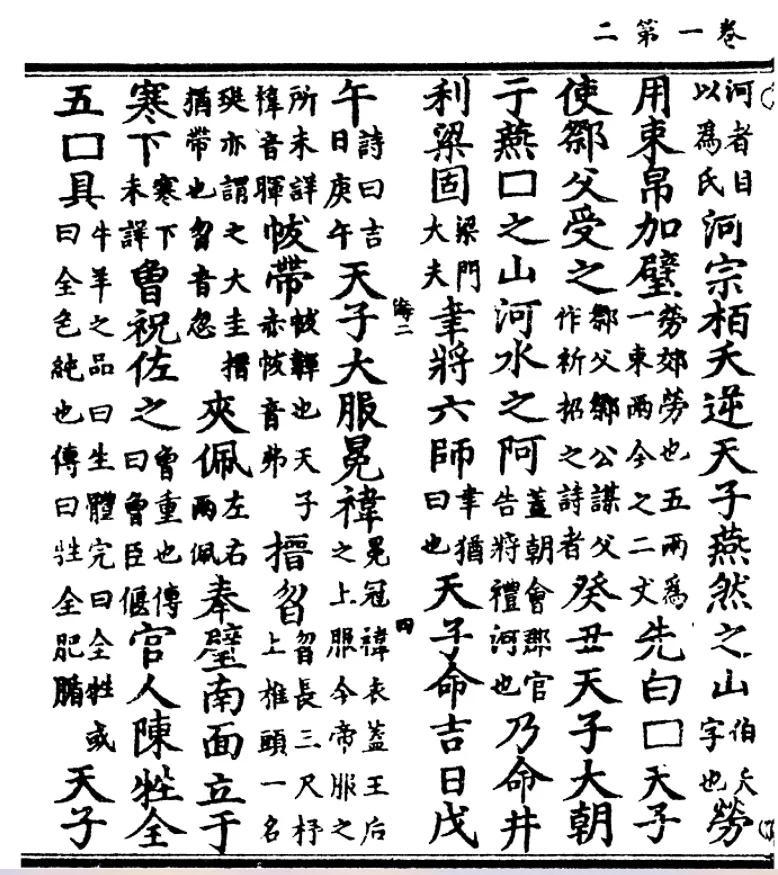 卷一第二
河者目以為氏河宗栢夭逆天子燕然之山伯夭字也勞
用束帛加璧勞郊勞也五兩為一束兩今之二丈先白□天子
使鄒父受之鄒父鄒公謀父作祈招之詩者癸丑天子大朝
于燕□之山河水之阿蓋朝會郡官告將禮河也乃命井
利梁固梁門大夫聿將六師聿猶曰也天子命吉日戊
海二
四
午詩曰吉日庚午天子大服冕禕冕冠禕衣蓋王后之上服今帝服之
所未詳禕音暉帗帶帗韠也天子赤帗音弗搢曶曶長三尺杼上椎頭一名
珽亦謂之大圭搢猶帶也曶音忽夾佩左右兩佩奉璧南面立于
寒下寒下未詳曾祝佐之曾重也傳曰曾臣偃官人陳牲全
五□具牛羊之品曰生體完曰全牲或曰全色純也傳曰牷全肥腯天子